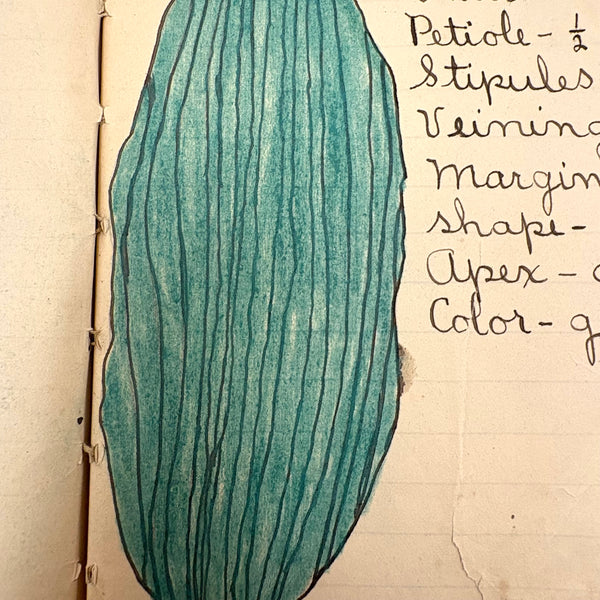 Petiole - ½
Stipules
Veining
Margin
shape -
Apex -
Color - g